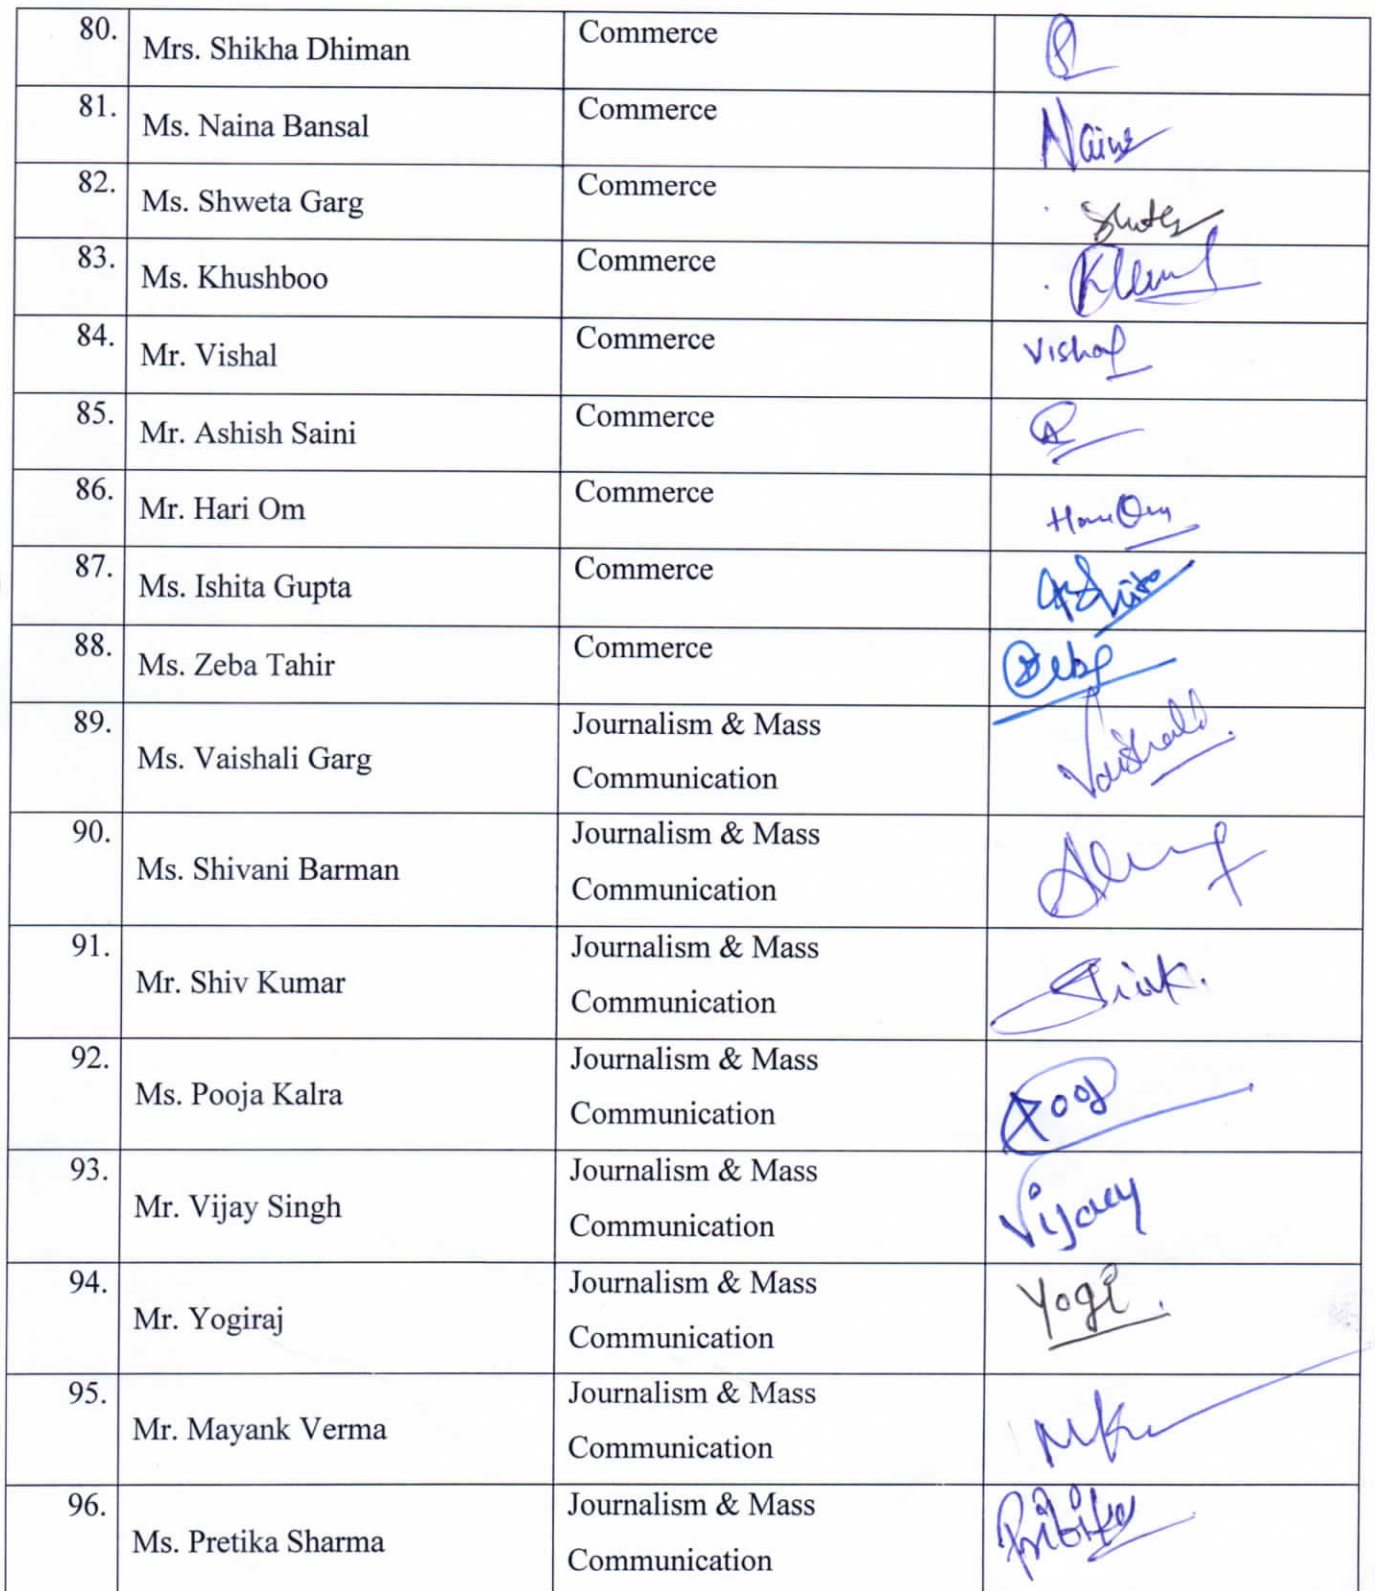 80. Mrs. Shikha Dhiman Commerce
81. Ms. Naina Bansal Commerce Naina
82. Ms. Shweta Garg Commerce
83. Ms. Khushboo Commerce
84. Mr. Vishal Commerce Vishal
85. Mr. Ashish Saini Commerce
86. Mr. Hari Om Commerce Hari Om
87. Ms. Ishita Gupta Commerce
88. Ms. Zeba Tahir Commerce Zeba
89. Ms. Vaishali Garg Journalism & Mass Vaishali
Communication
90. Ms. Shivani Barman Journalism & Mass
Communication
91. Mr. Shiv Kumar Journalism & Mass
Communication
92. Ms. Pooja Kalra Journalism & Mass
Communication
93. Mr. Vijay Singh Journalism & Mass Vijay
Communication
94. Mr. Yogiraj Journalism & Mass Yogi
Communication
95. Mr. Mayank Verma Journalism & Mass
Communication
96. Ms. Pretika Sharma Journalism & Mass
Communication